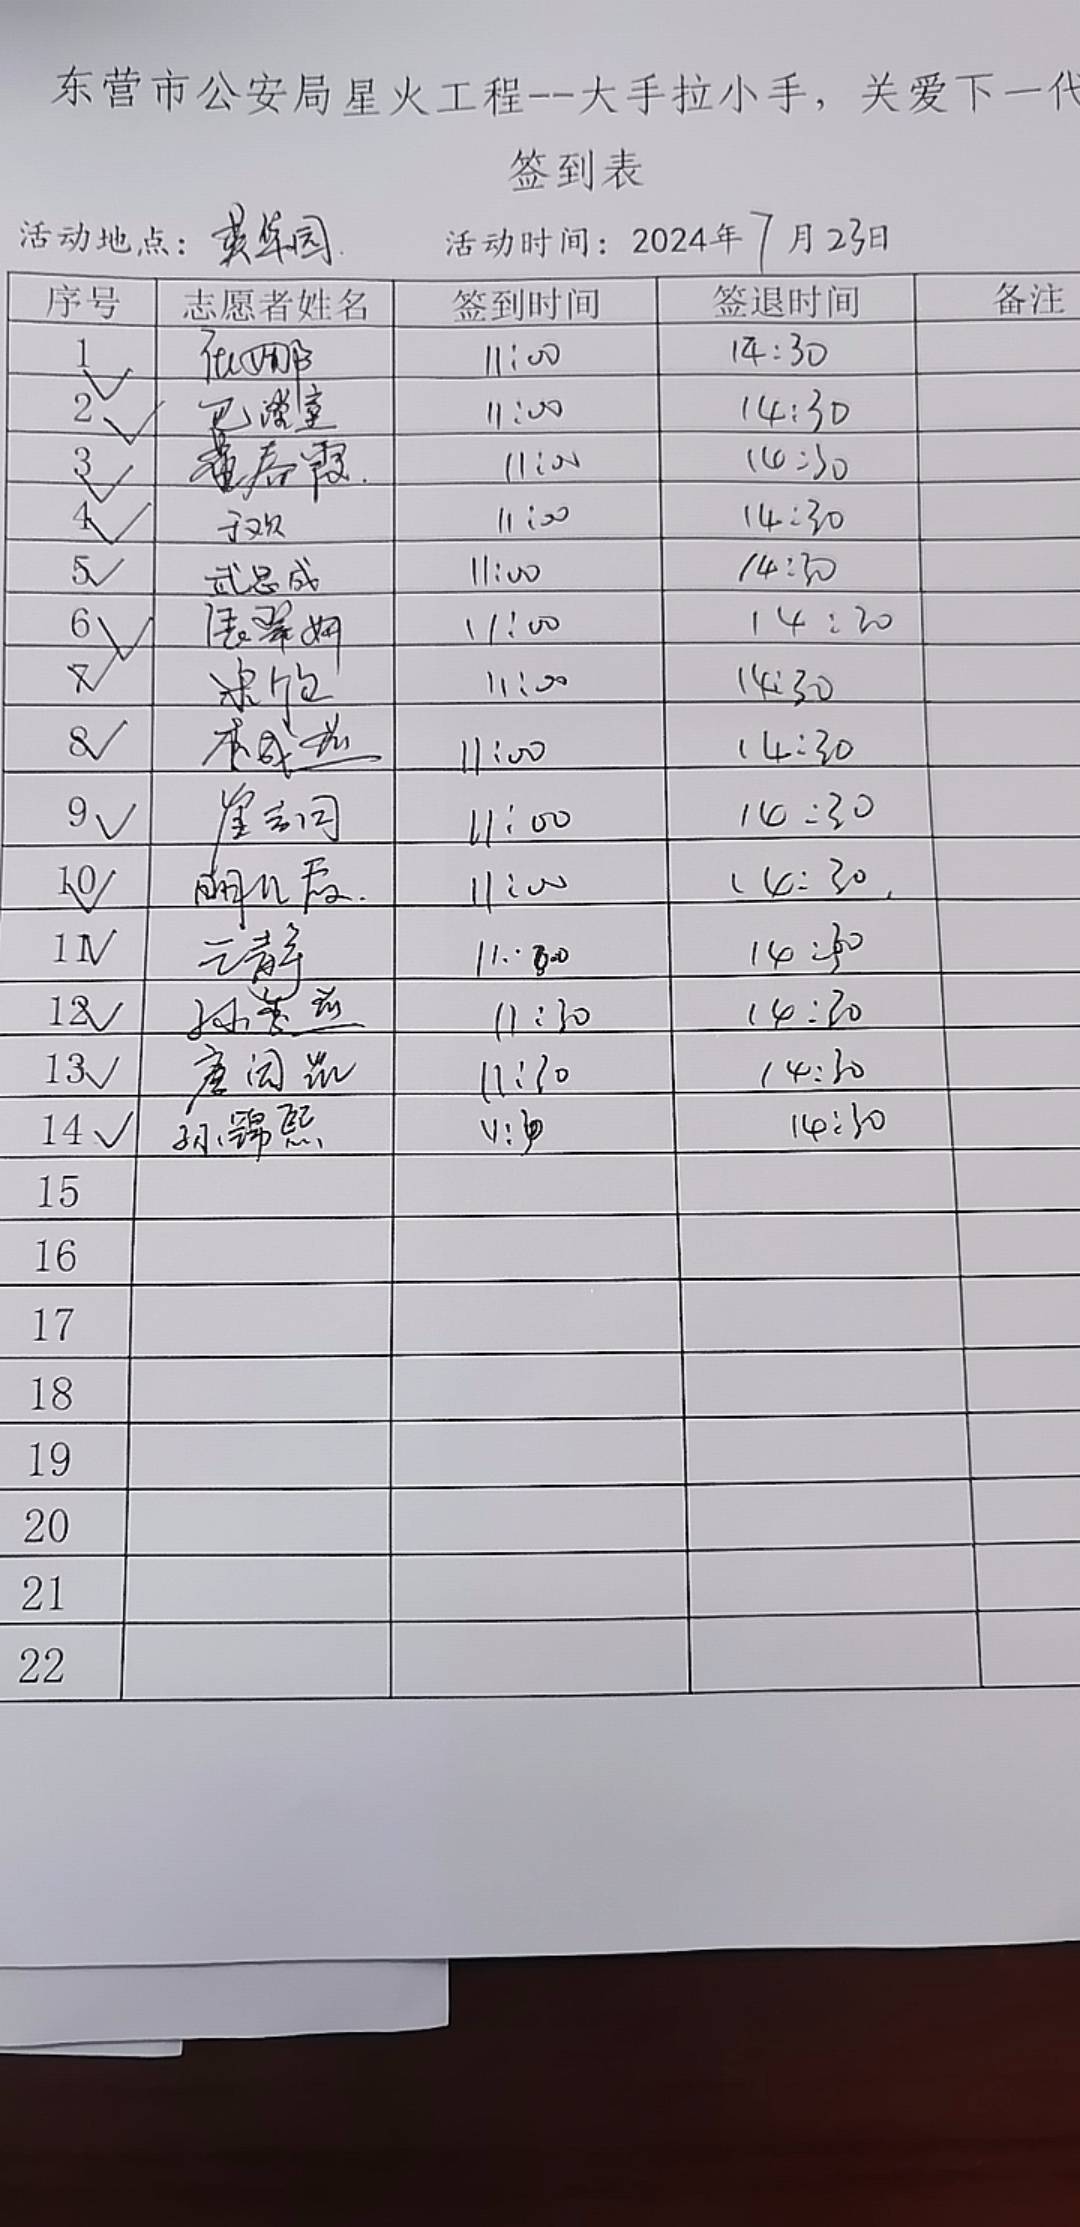 东营市公安局星火工程--大手拉小手，关爱下一代
签到表
活动地点：英华园. 活动时间：2024年7月23日
序号 志愿者姓名 签到时间 签退时间 备注
1 11:00 14:30
2 11:00 14:30
3 董春霞. 11:00 14:30
4 于欢 11:00 14:30
5 武忠成 11:00 14:30
6 11:00 14:30
7 11:00 14:30
8 李成燕 11:00 14:30
9 11:00 14:30
10 11:00 14:30
11 14:30
12 11:30 14:30
13 唐闰凯 11:30 14:30
14 孙锦熙 14:30
15
16
17
18
19
20
21
22